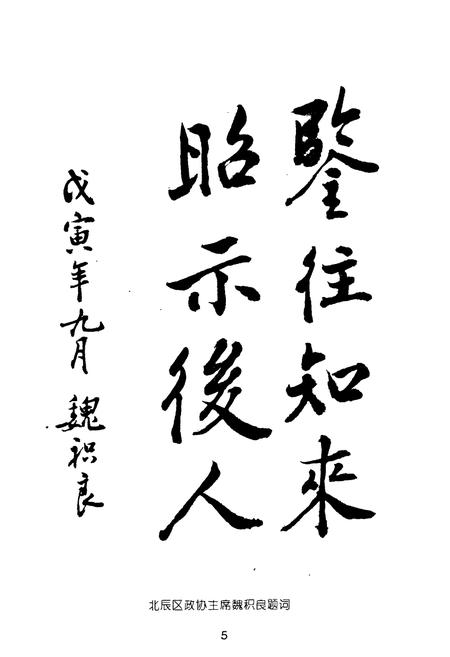 鑒往知來
昭示後人
戊寅年九月 魏积良
北辰区政协主席魏积良题词
5